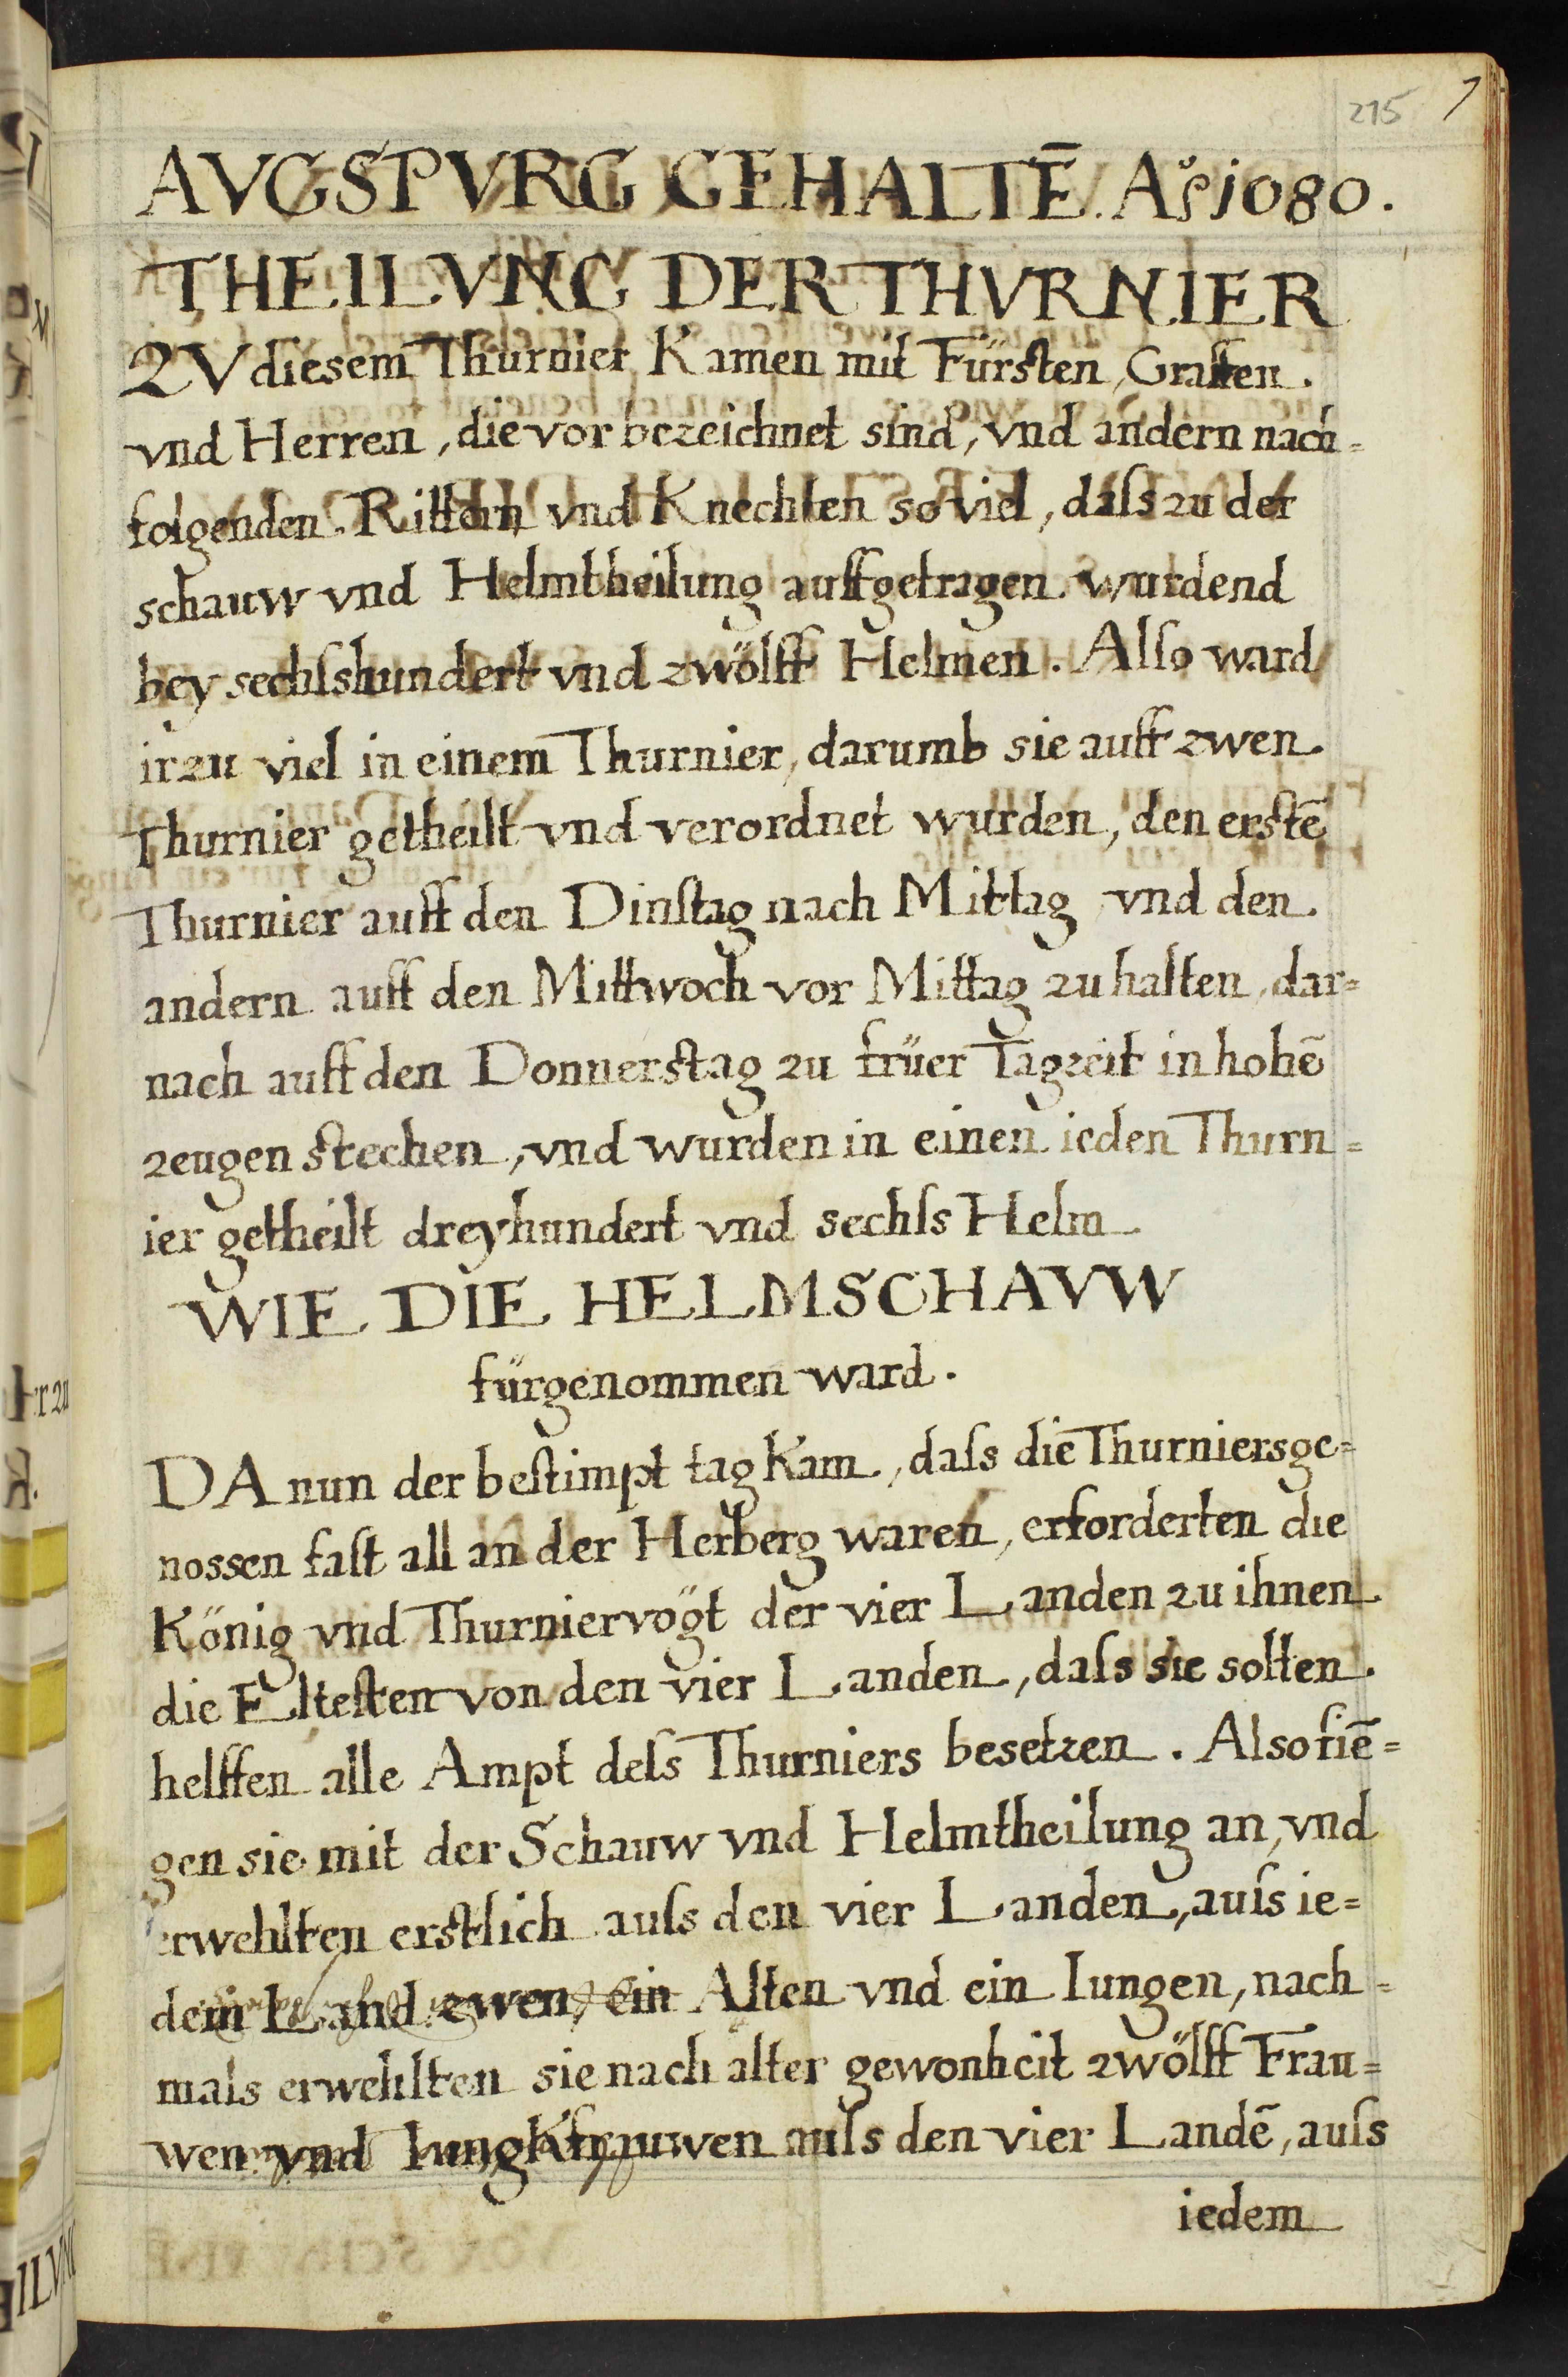 215 7
AVGSPVRG GEHALTĒ. Aº 1080.
THEILVNG DER THVRNIER
ZV diesem Thurnier Kamen mit Fürsten, Graffen.
vnd Herren, die vor bezeichnet sind, vnd andern nach=
folgenden Rittern vnd Knechten so viel, daſs zu der
schauw vnd Helmtheilung auffgetragen wurdend
bey sechſshundert vnd zwölff Helmen. Alſo ward
ir zu viel in einem Thurnier, darumb sie auff zwen
Thurnier getheilt vnd verordnet wurden, den erstē
Thurnier auff den Dinſtag nach Mittag vnd den
andern auff den Mittwoch vor Mittag zu halten, dar=
nach auff den Donnerstag zu früer Tagzeit in hohē
zeugen stechen, vnd wurden in einen ieden Thurn=
ier getheilt dreyhundert vnd sechſs Helm
WIE DIE HELMSCHAVW
fürgenommen ward.
DA nun der beſtimpt tag Kam, daſs die Thurniersge=
nossen faſt all an der Herberg waren, erforderten die
König vnd Thurniervögt der vier Landen zu ihnen
die Elteſten von den vier Landen, daſs sie solten
helffen alle Ampt deſs Thurniers besetzen. Also fiē=
gen sie mit der Schauw vnd Helmtheilung an, vnd
erwehlten erstlich auſs den vier Landen, auſs ie=
dem Land zwen, ein Alten vnd ein Iungen, nach=
mals erwehlten sie nach alter gewonheit zwölff Frau=
wen vnd Iungkfrauwen auſs den vier Landē, auſs
iedem